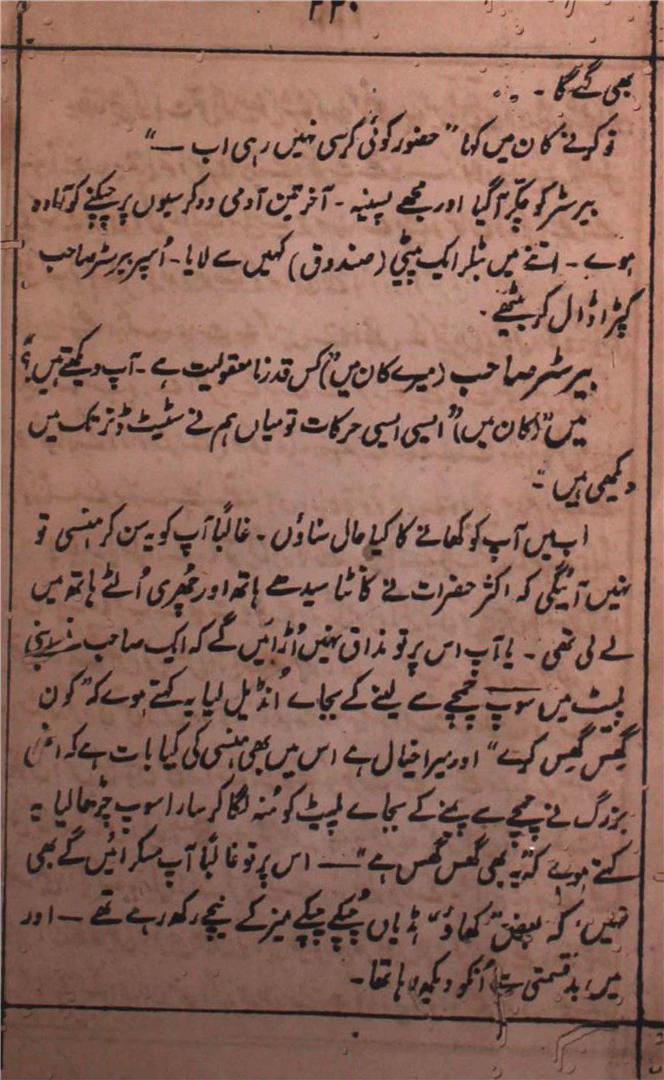 ۲۲۰
بھی گے گا ۔
نوکرنے کان میں کہا " حضور کوئی کرسی نہیں رہی اب — "
بیرسٹر کو چکّر آگیا اور مجھے پسینہ ۔ آخر تین آدمی دو کرسیوں پر چپکنے کو آمادہ
ہوے ۔ اتنے میں بٹلر ایک پیٹی (صندوق) کہیں سے لایا ۔ اُسپر بیرسٹر صاحب
کپڑا ڈال کر بیٹھے ۔
بیرسٹر صاحب (میرے کان میں) "کس قدر نا معقولیت ہے ۔ آپ دیکھتے ہیں؟"
میں (کان میں) "ایسی ایسی حرکات تو میاں ہم نے سٹیٹ ڈنر تک میں
دیکھی ہیں "۔
اب میں آپ کو کھانے کا کیا حال سناؤں ۔ غالباً آپ کو یہ سن کر ہنسی تو
نہیں آئیگی کہ اکثر حضرات نے کانٹا سیدھے ہاتھ اور چھُری اُلٹے ہاتھ میں
لے لی تھی ۔ یا آپ اس پر تو مذاق نہیں اُڑائیں گے کہ ایک صاحب نے اپنی
پلیٹ میں سوپ چمچے سے لینے کے بجاے اُنڈیل لیا یہ کہتے ہوے کہ "کون
گھِس گھِس کرے " اور میرا خیال ہے اس میں بھی ہنسی کی کیا بات ہے کہ انہی
بزرگ نے چمچے سے پینے کے بجاے پلیٹ کو مُنہ لگا کر سارا سوپ چڑھا لیا یہ
کہتے ہوے کہ "یہ بھی گھس گھس ہے " — اس پر تو غالباً آپ مسکرائیں گے بھی
نہیں، کہ بعض "کھاؤ" ہڈیاں چُپکے چپکے میز کے نیچے رکھ رہے تھے — اور
میں، بدقسمتی سے اُنکو دیکھ رہا تھا ۔